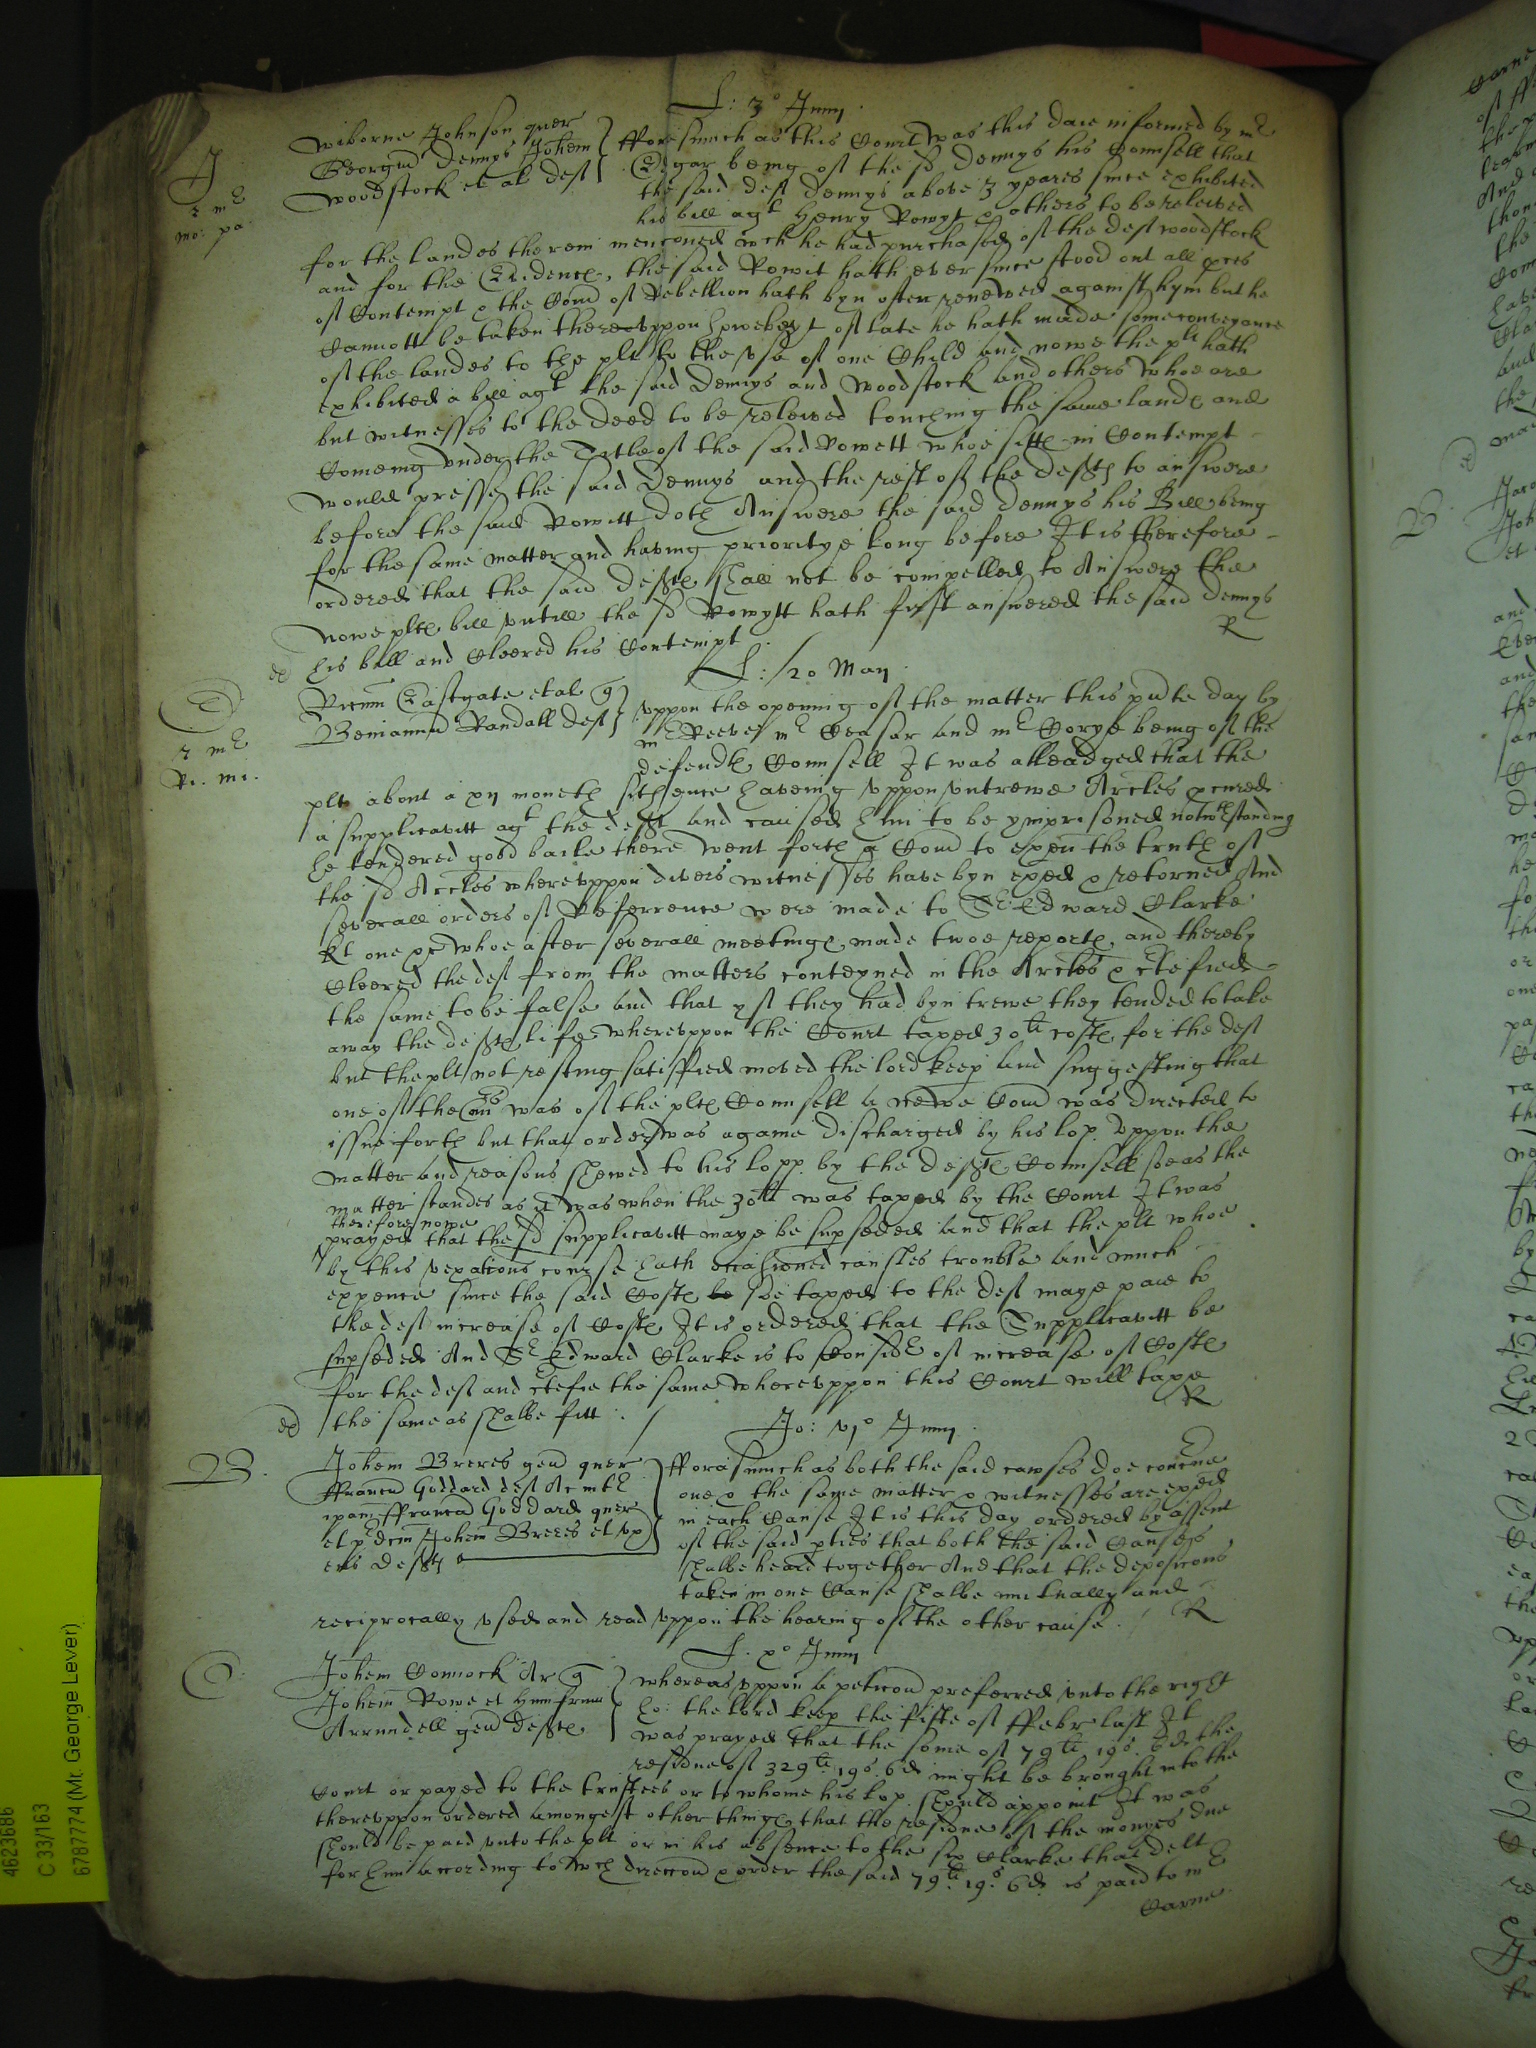 L: 3° Junij
Wiborne Johnson quer
Georgiu Dennys Johem
Woodstock et al deft
J
r mr
mo: pa:
fforasmuch as this Court was this daie informed by mr
Edgar being of the sd Dennys his Counsell that
the said deft Dennys above 3 yeares since exhibited
his bill agt Henry Rowyt & others to be releived
for the landes therein menconed wch he had purchased of the deft Woodstock
and for the Evidence, the said Rowit hath ever since stood out all pces
of Contempt & the Com of Rebellion hath byn often renewed against hym but he
Cannott be taken thereuppon howebeyt of late he hath made some conveyance
of the landes to the plt to the use of one Child and nowe the plt hath
exhibited a bill agt the said Dennys and Woodstock and others whoe are
but witnesses to the deed to be releived touching the same landes and
Comeing under the Title of the said Rowett whoe sitts in Contempt
would presse the said Dennys and the rest of the defts to answere
before the said Rowitt doth Answere the said Dennys his Bill being
for the same matter and having prioritye long before It is therefore
ordered that the said defts shall not be compelled to Answere the
nowe plts bill untill the sd Rowytt hath first answered the said Dennys
his bill and Cleered his Contempt R
ex
L: 20 May
E
r mr
Ri. mi.
Vicenm Eastgate et al q
Beniamin Randall deft
uppon the opening of the matter this pnte day by
mr Reeves mr Ceasar and mr Corye being of the
defendts Counsell It was alleadged that the
plt about a xij moneth sithence haveing uppon untrewe Arcles pcured
a supplicavitt agt the deft and caused him to be ymprisoned notwthstanding
he tendered good baile there went forth a Com to exam the truth of
the sd Arcles whereuppon divers witnesses have byn exed & retorned And
severall orders of Referrence were made to Sr Edward Clarke
Kt one &c whoe after severall meetings made twoe reports and thereby
Cleered the deft from the matters conteyned in the Arcles & ctefied
the same to be false and that yf they had byn trewe they tended to take
away the defts life whereuppon the Court taxed 30li costs for the deft
but the plt not resting satisfied moved the lord keep and suggesting that
one of the Comrs was of the plts Counsell a newe Com was directed to
issue forth but that order was againe discharged by his lop. uppon the
matter and reasons shewed to his lopp. by the defts Counsell soe as the
matter standes as it was when the 30li was taxed by the Court It was
therefore nowe
prayed that the sd supplicavitt maye be supseded and that the plt whoe
by this vexatious course hath occasioned causles trouble and much
expence since the said Costs soe taxed to the deft maye paie to
the deft increase of Costs It is ordered that the Supplicavitt be
supseded And Sr Edward Clarke is to consider of increase of Costs
for the deft and ctefie the same whereuppon this Court will taxe
the same as shalbe fitt. R
ex
Jo: vj° Junij
B.
Johem Breres gen quer
ffrancu Goddard deft Ac int
ipam ffrancu Goddard quer
et pdcm Johem Breres et ux
eius defts
fforasmuch as both the said causes doe concerne
one & the same matter & witnesses are exed
in each Cause It is this day ordered by assent
of the said pties that both the said Causes
shalbe heard together And that the deposicons
taken in one Cause shalbe mutually and
reciprocally used and read uppon the hearing of the other cause. R
L. x° Junij
C:
Johem Connock Ar q
Johem Rowe et Humfrium
Arrundell gen defts
Whereas uppon a peticon preferred unto the right
ho: the lord keep the fifte of ffebr last It
was prayed that the some of 79li 19s. 6d. the
residue of 329li. 19s. 6d. might be brought into the
Court or payed to the trustees or to whome his lop. should appoint It was
thereuppon ordered amongest other things that the residue of the monyes due
should be paid unto the plt or in his absence to the six Clarke that delt
for him according to wch direccon & order the said 79li. 19s. 6d. is paid to mr
Carne
4623686
C 33/163
6787774 (Mr. George Lever)